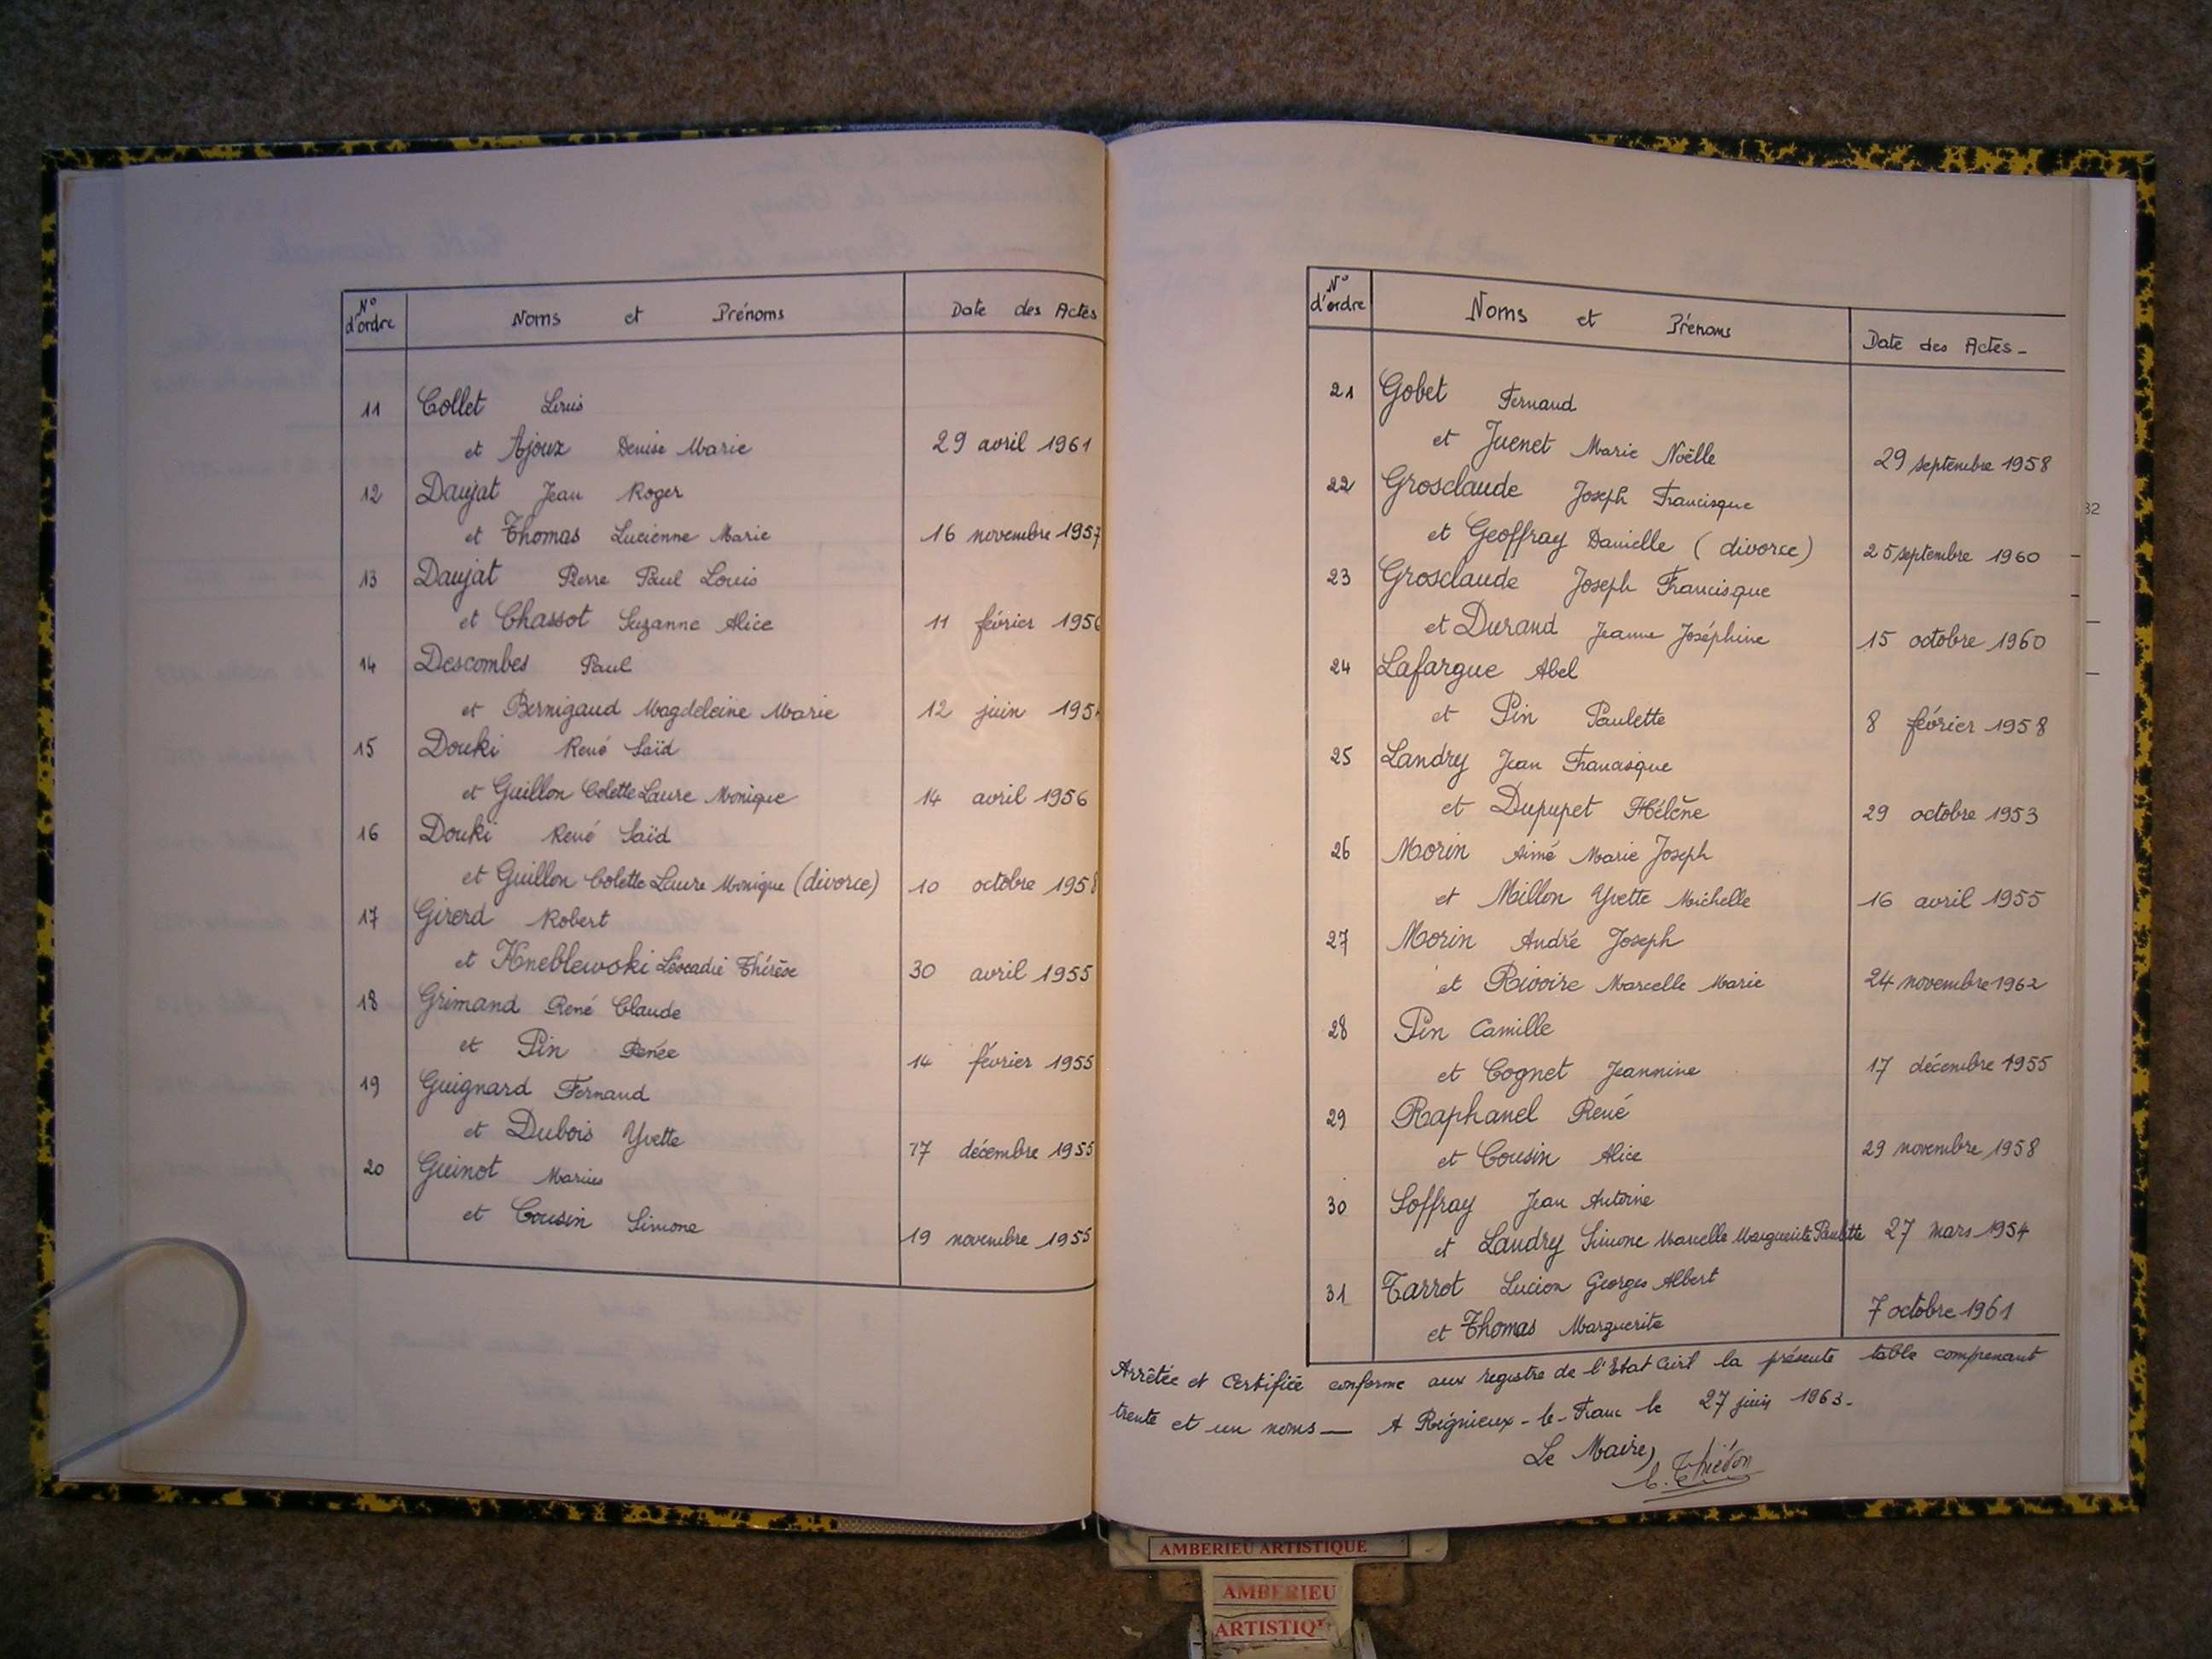 N° d'ordre Noms et Prénoms Date des Actes
11 Collet Louis
et Ajoux Denise Marie 29 avril 1961
12 Daujat Jean Roger
et Thomas Lucienne Marie 16 novembre 1957
13 Daujat Pierre Paul Louis
et Chassot Suzanne Alice 11 février 1956
14 Descombes Paul
et Bernigaud Magdeleine Marie 12 juin
15 Douki René Saïd
et Guillon Colette Laure Monique 14 avril 1956
16 Douki René Saïd
et Guillon Colette Laure Monique (divorce) 10 octobre 1958
17 Girerd Robert
et Kneblewski Léocadie Thérèse 30 avril 1955
18 Grimand René Claude
et Pin Renée 14 février 1955
19 Guignard Fernand
et Dubois Yvette 17 décembre 1955
20 Guinot Marius
et Cousin Simone 19 novembre 1955
N° d'ordre Noms et Prénoms Date des Actes -
21 Gobet Fernand
et Juenet Marie Noëlle 29 septembre 1958
22 Grosclaude Joseph Francisque
et Geoffray Danielle (divorce) 25 septembre 1960
23 Grosclaude Joseph Francisque
et Durand Jeanne Joséphine 15 octobre 1960
24 Lafargue Abel
et Pin Paulette 8 février 1958
25 Landry Jean Francisque
et Dupupet Hélène 29 octobre 1953
26 Morin Aimé Marie Joseph
et Millon Yvette Michelle 16 avril 1955
27 Morin André Joseph
et Rivoire Marcelle Marie 24 novembre 1962
28 Pin Camille
et Cognet Jeannine 17 décembre 1955
29 Raphanel René
et Cousin Alice 29 novembre 1958
30 Soffray Jean Antoine
et Landry Simone Marcelle Marguerite Paulette 27 mars 1954
31 Tarrot Lucien Georges Albert
et Thomas Marguerite 7 octobre 1961
Arrêtée et Certifiée conforme aux registre de l'Etat Civil la présente table comprenant
trente et un noms — A Régnieux-le-Franc le 27 juin 1963.
Le Maire,
C. Thiévon
32
AMBERIEU ARTISTIQUE
AMBERIEU
ARTISTIQ